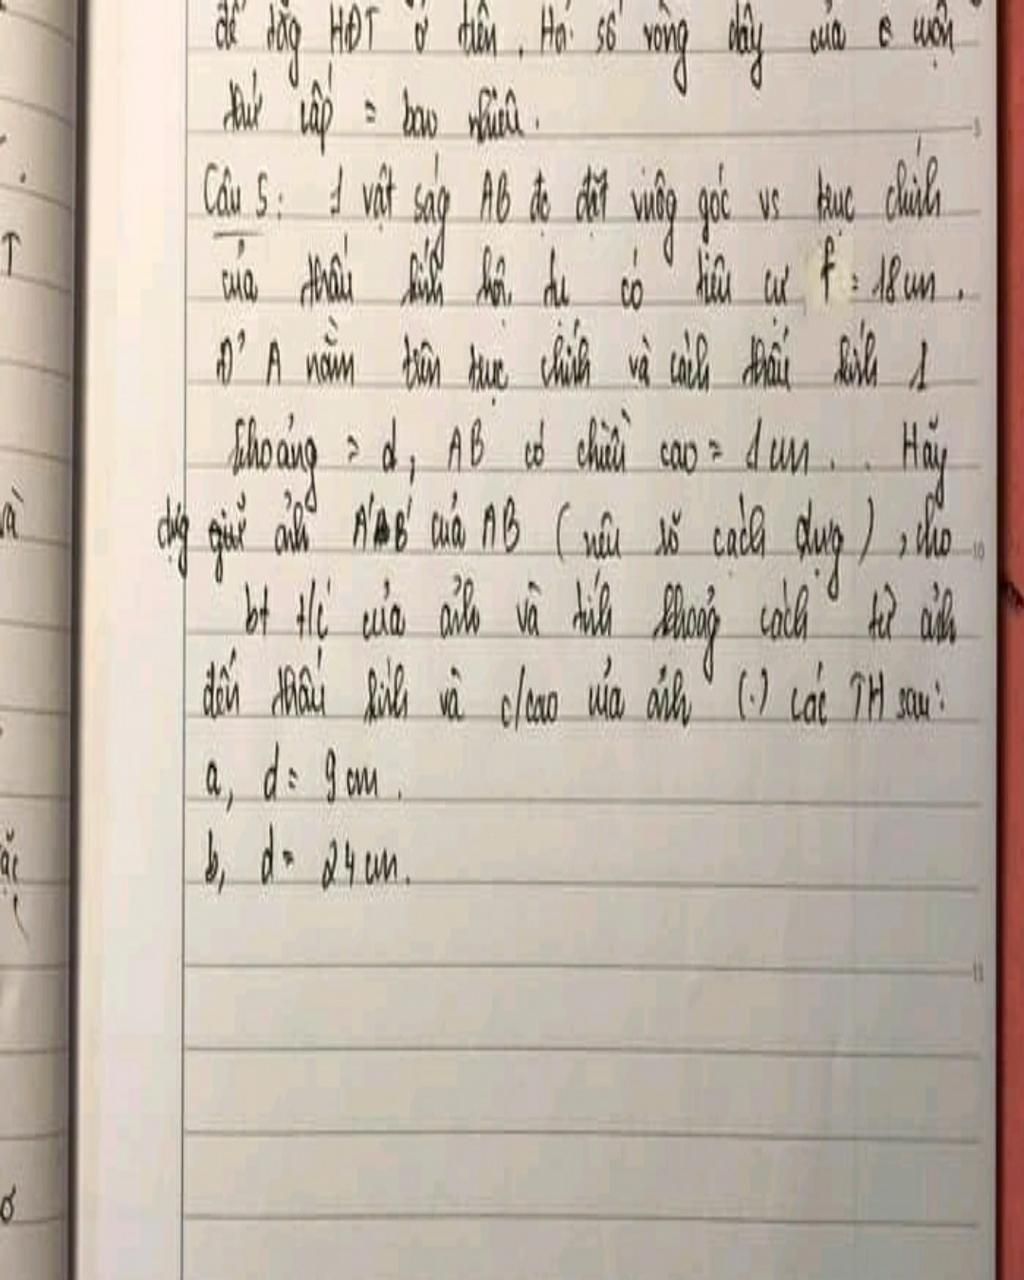 để tăg HĐT ở trên. Hỏi số vòng dây của cuộn
thứ cấp = bao nhiêu.
Câu 5: 1 vật ság AB đc đặt vuôg góc vs trục chính
của thấu kính hội tụ có tiêu cự f = 18 cm.
Đ' A nằm trên trục chính và cách thấu kính 1
khoảng = d, AB có chiều cao = 1 cm. Hãy
dựg ảnh A'B' của AB (nêu rõ cách dựg), cho
bt t/c của ảnh và tính khoảg cách từ ảnh
đến thấu kính và c/cao của ảnh (.) các TH sau:
a, d = 9 cm.
b, d = 24 cm.
T
và